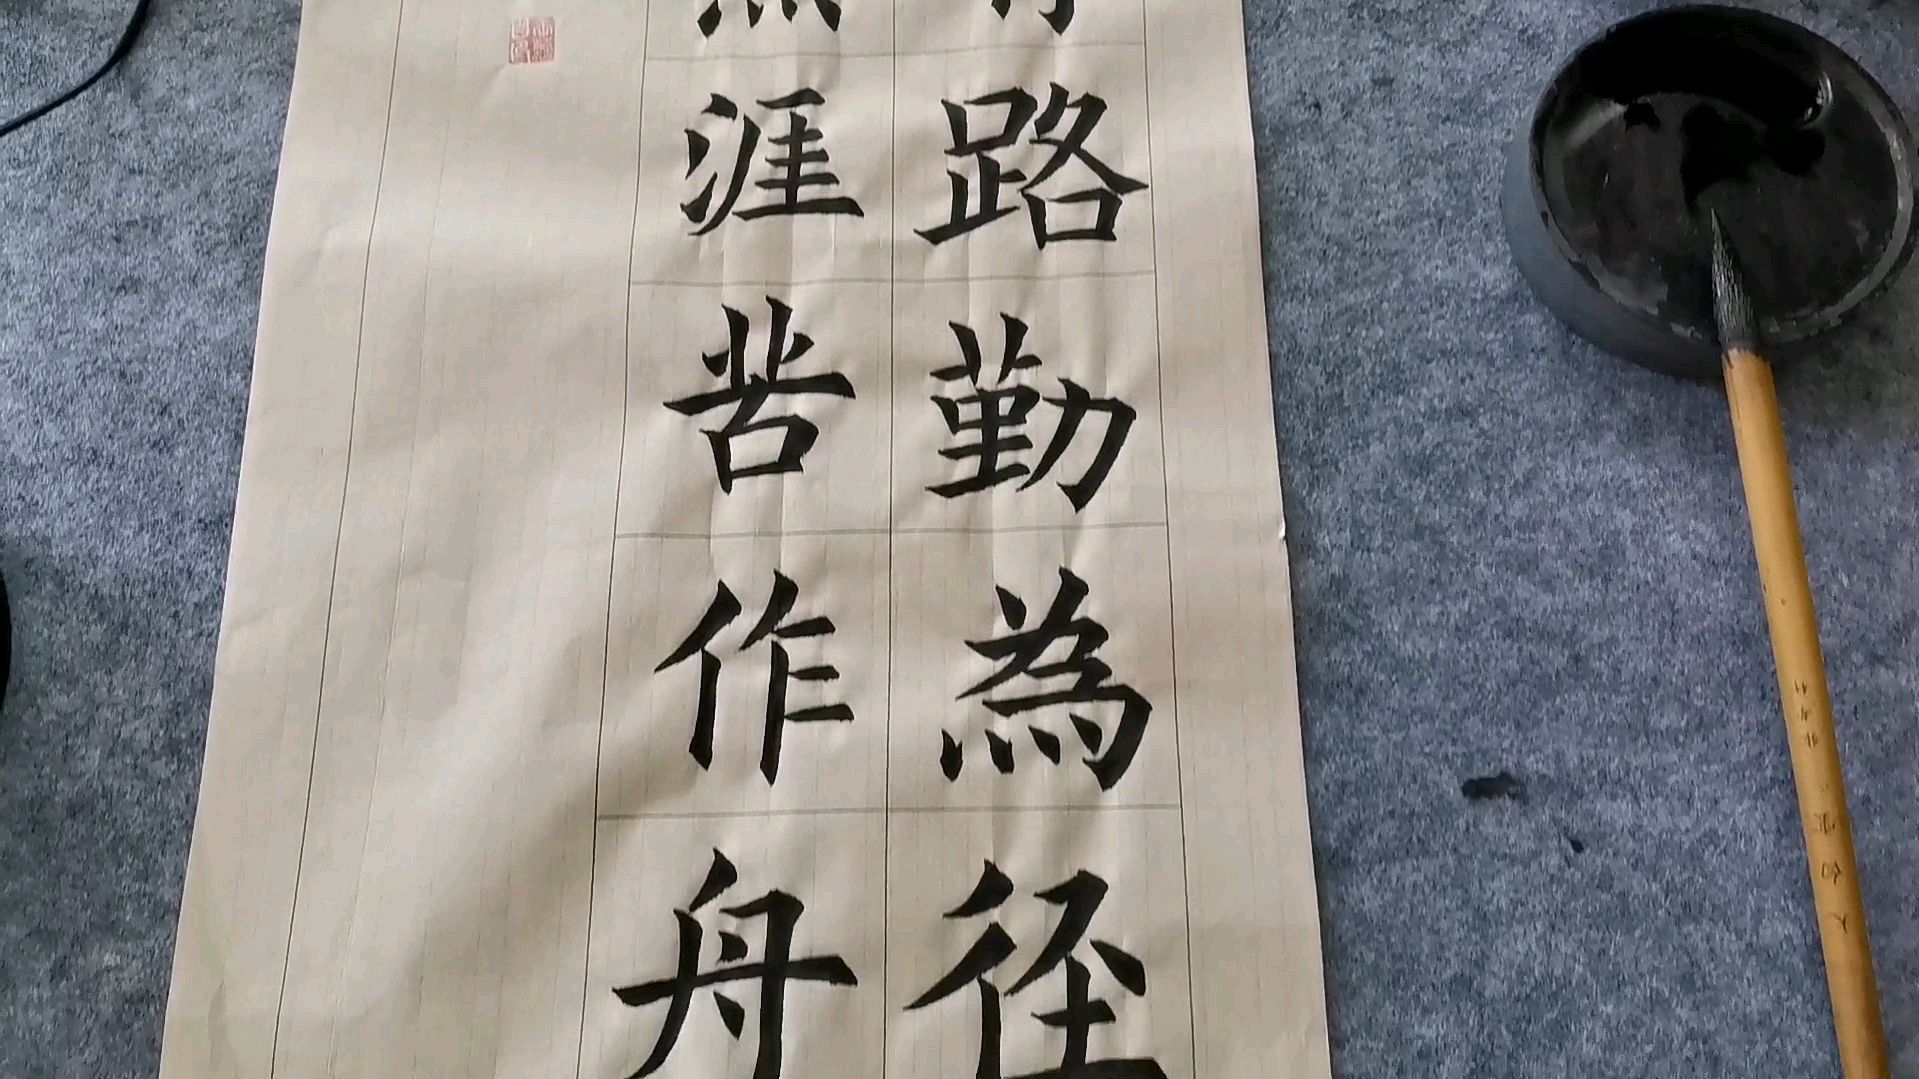 路勤為径
涯苦作舟